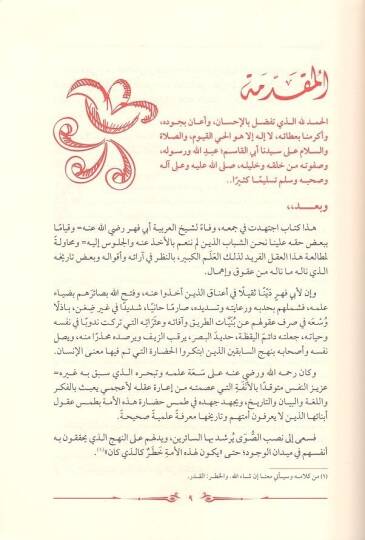 المقدّمة
الحمد لله الذي تفضل بالإحسان، وأعان بجوده،
وأكرمنا بعطائه، لا إله إلا هو الحي القيوم، والصلاة
والسلام على سيدنا أبي القاسم؛ عبدِ الله ورسوله،
وصفوته من خلقه وخليله، صلى الله عليه وعلى آله
وصحبه وسلم تسليمًا كثيرًا..
وبعد،،
هذا كتاب اجتهدت في جمعه، وفاءً لشيخ العربية أبي فهر رضي الله عنه= وقيامًا
ببعض حقه علينا نحن الشباب الذين لم ننعم بالأخذ عنه والجلوس إليه= ومحاولةً
لمطالعة هذا العقل الفريد لذلك العَلَم الكبير، بالنظر في آرائه وأقواله وبعض تاريخه
الذي ناله ما ناله من عقوق وإهمال.
وإن لأبي فهرٍ دَيْنًا ثقيلًا في أعناق الذين أخذوا عنه، وفتح الله بصائرهم بضياء
علمه، فشملهم بحدبه ورعايته وتسديده، صارمًا حانيًا، شديدًا في غير ضِغن، باذلًا
وُسْعَه في صرف عقولهم عن بُنَيَّات الطريق وآفاته وعثَرَاتِه التي تركت ندوبًا في نفسه
وحياته، جعلته دائمَ اليقظة، حديدَ البصر، يرقب الزيف ويرصده محذرًا منه، ويصل
نفسه وأصحابه بنهج السابقين الذين ابتكروا الحضارة التي تم فيها معنى الإنسان.
وكان رحمه الله ورضي عنه على سَعَة علمه وتبحره الذي سبق به غيره=
عزيزَ النفس متوقدًا بالأنَفَةِ التي عصمته من إعارة عقله لأعجمي يعبث بالفكر
واللغة والبيان والتاريخ، ويجهد جهده في طمس حضارة هذه الأمة بطمس عقول
أبنائها الذين لا يعرفون أمتهم وتاريخها معرفةً علميةً صحيحةً.
فسعى إلى نصب الصُّوَى يُرشد بها السائرين، ويدلهم على النهج الذي يحققون به
أنفسهم في ميدان الوجود؛ حتى «يكون لهذه الأمةِ خَطَرٌ كالذي كان»(١).
(١) من كلامه وسيأتي معنا إن شاء الله. والخطر: القدر.
٩